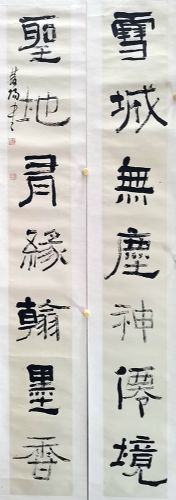 雪域無塵神僊境
聖地有緣翰墨香